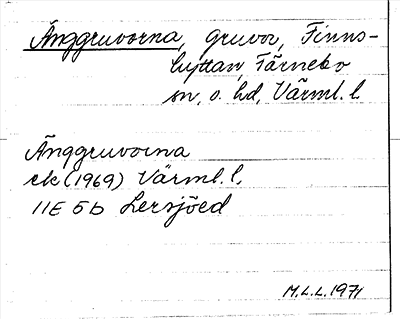 Änggruvorna, gruvor, Finns-
hyttan, Färnebo
sn, o. hd, Värml. l.
Änggruvorna
ek (1969) Värml. l.
11E 5b Lersjöed
M.L.L. 1971